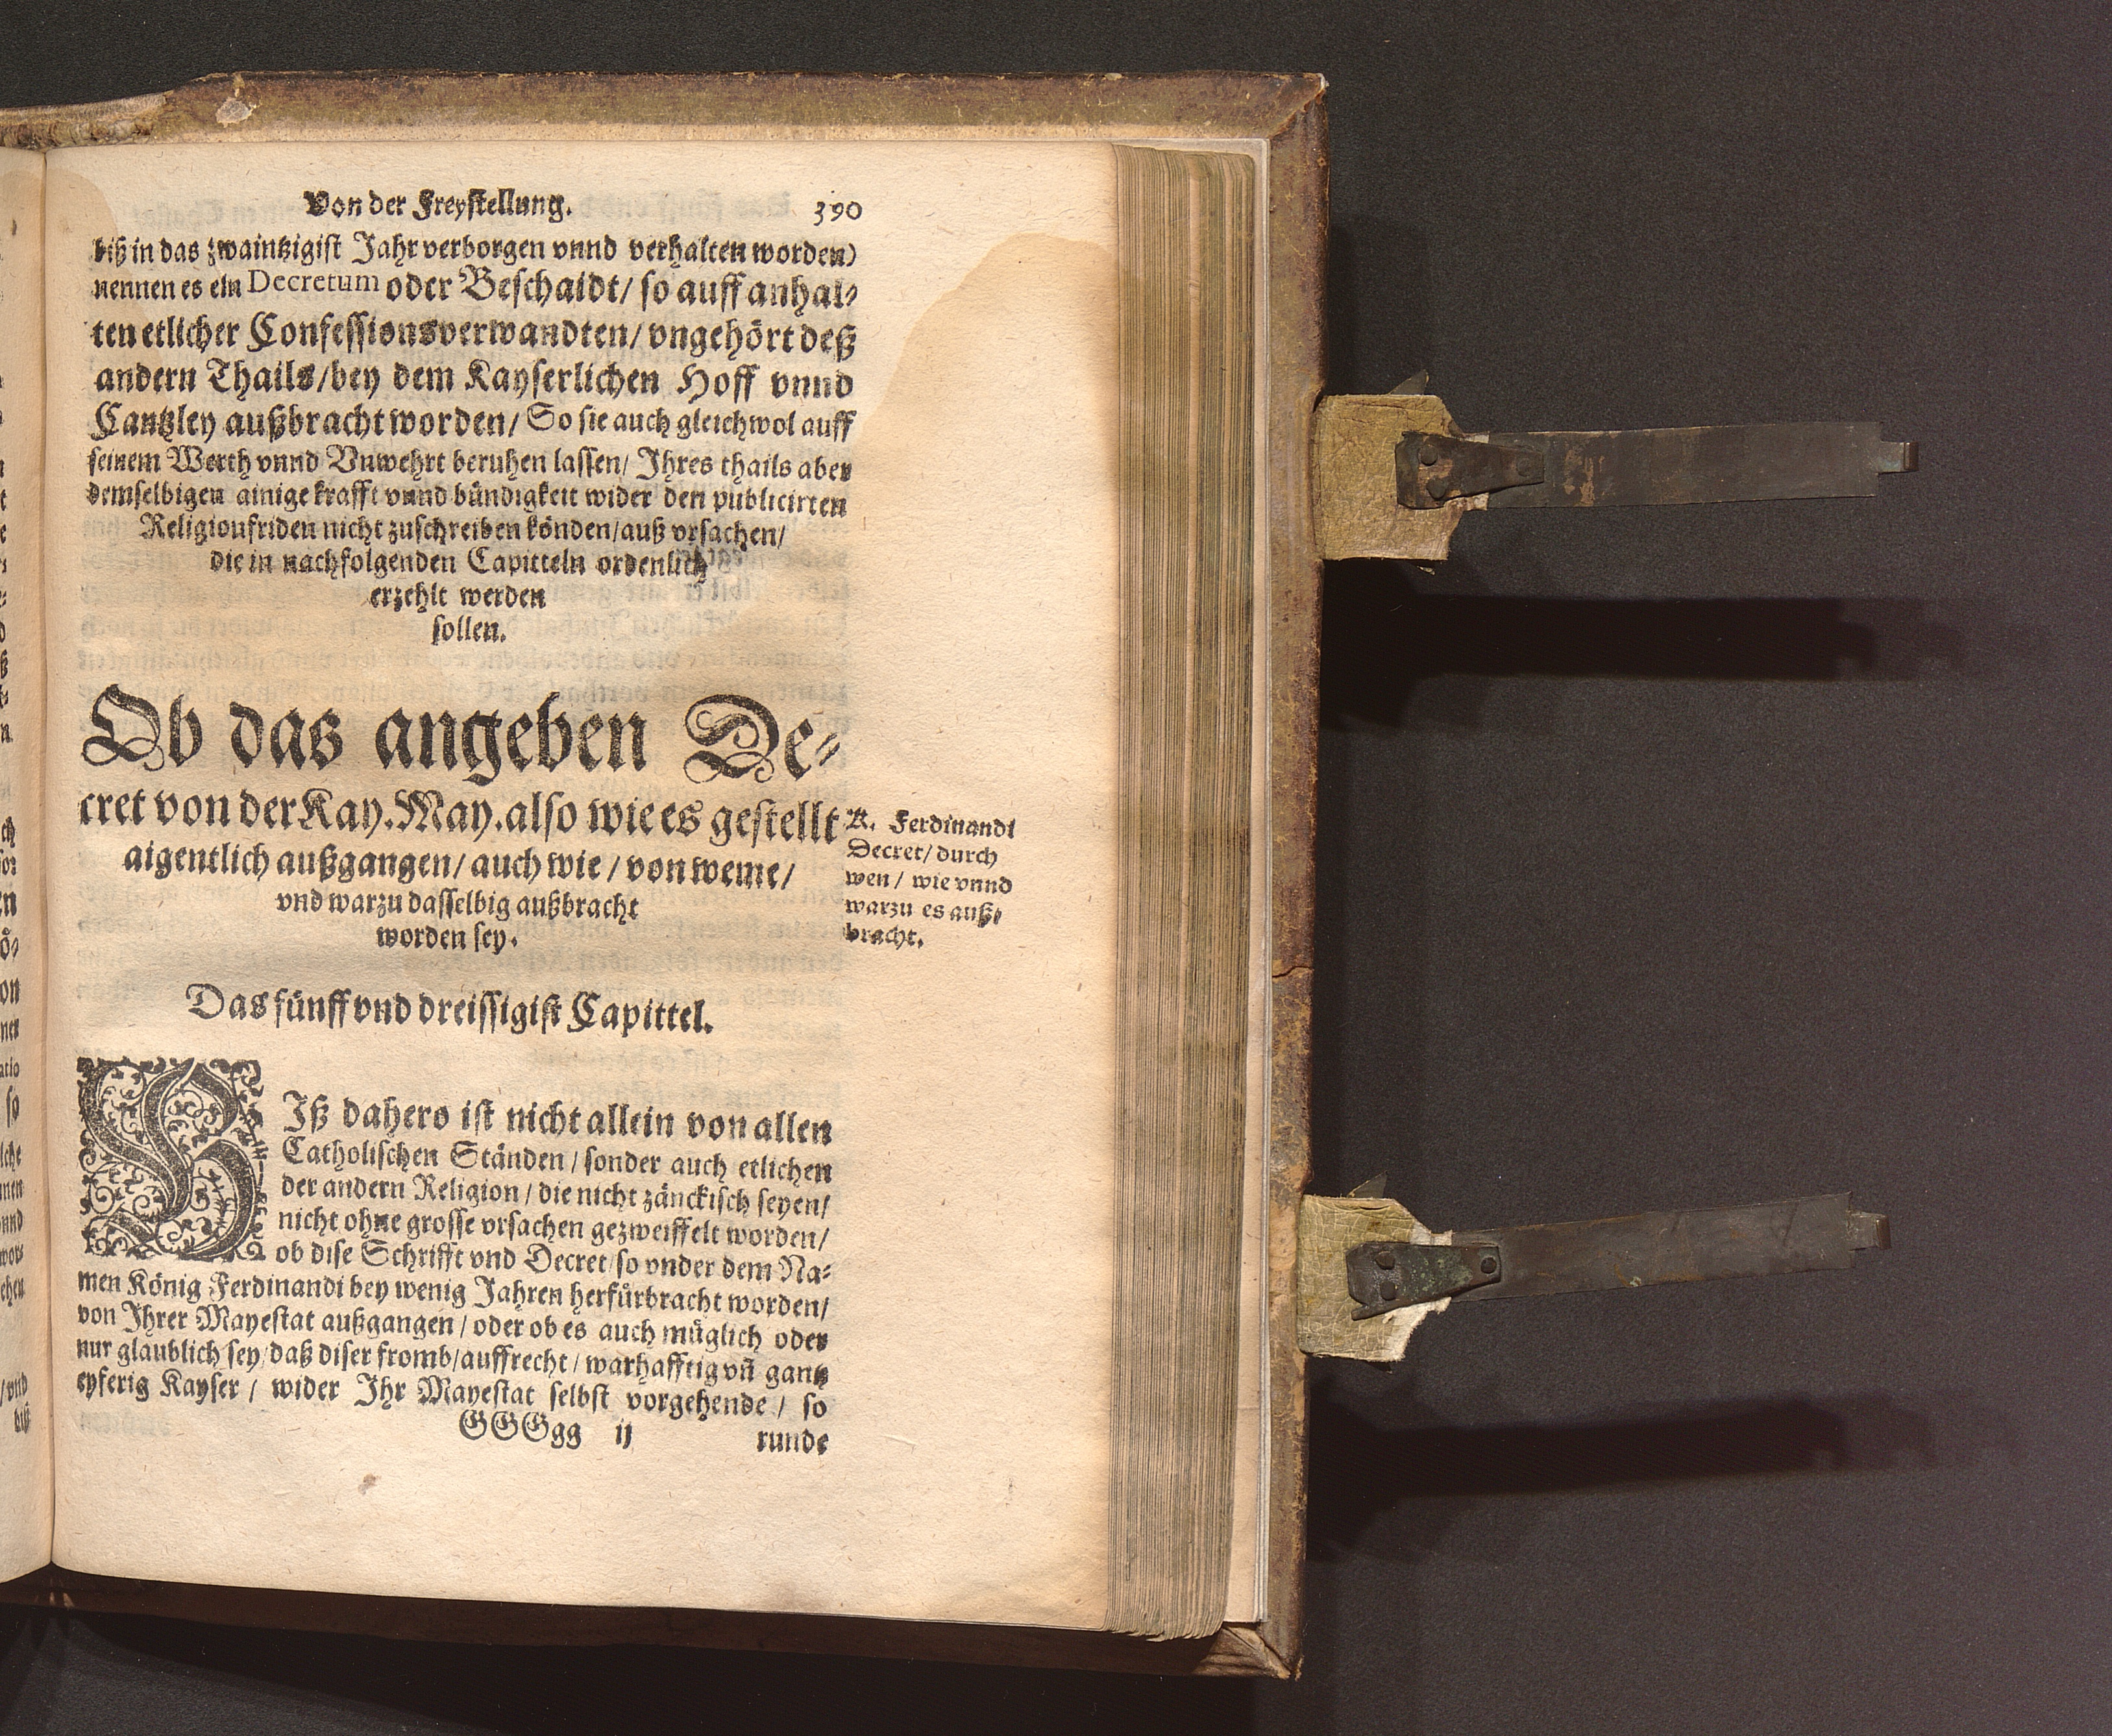 Von der Freystellung. 390
biß in das zwaintzigist Jahr verborgen vnnd verhalten worden)
nennen es ein Decretum oder Beschaidt/ so auff anhal-
ten etlicher Confessionsverwandten/ vngehört deß
andern Thails/bey dem Kayserlichen Hoff vnnd
Cantzley außbracht worden/ So sie auch gleichwol auff
seinem Werth vnnd Vnwehrt beruhen lassen/ Ihres thails aber
demselbigen ainige krafft vnnd bündigkeit wider den publicirten
Religionfriden nicht zuschreiben könden/auß vrsachen/
die in nachfolgenden Capitteln ordenlich
erzehlt werden
sollen.
Ob das angeben De-
cret von der Kay. May. also wie es gestellt
aigentlich außgangen/ auch wie / von weme/
vnd warzu dasselbig außbracht
worden sey.
K. Ferdinandi
Decret/ durch
wen / wie vnnd
warzu es auß-
bracht.
Das fünff vnd dreissigist Capittel.
BIß dahero ist nicht allein von allen
Catholischen Ständen / sonder auch etlichen
der andern Religion / die nicht zänckisch seyen/
nicht ohne grosse vrsachen gezweiffelt worden/
ob dise Schrifft vnd Decret/ so vnder dem Na-
men König Ferdinandi bey wenig Jahren herfürbracht worden/
von Ihrer Mayestat außgangen / oder ob es auch müglich oder
nur glaublich sey/ daß diser fromb/ auffrecht / warhafftig vn̄ gantz
eyferig Kayser / wider Ihr Mayestat selbst vorgehende / so
GGGgg ij runde